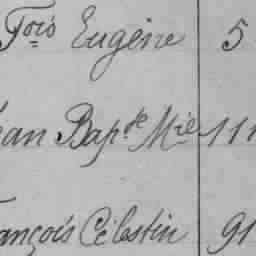 Fois Eugène 5
ean Bapte Mie 11
ançois Célestin 91